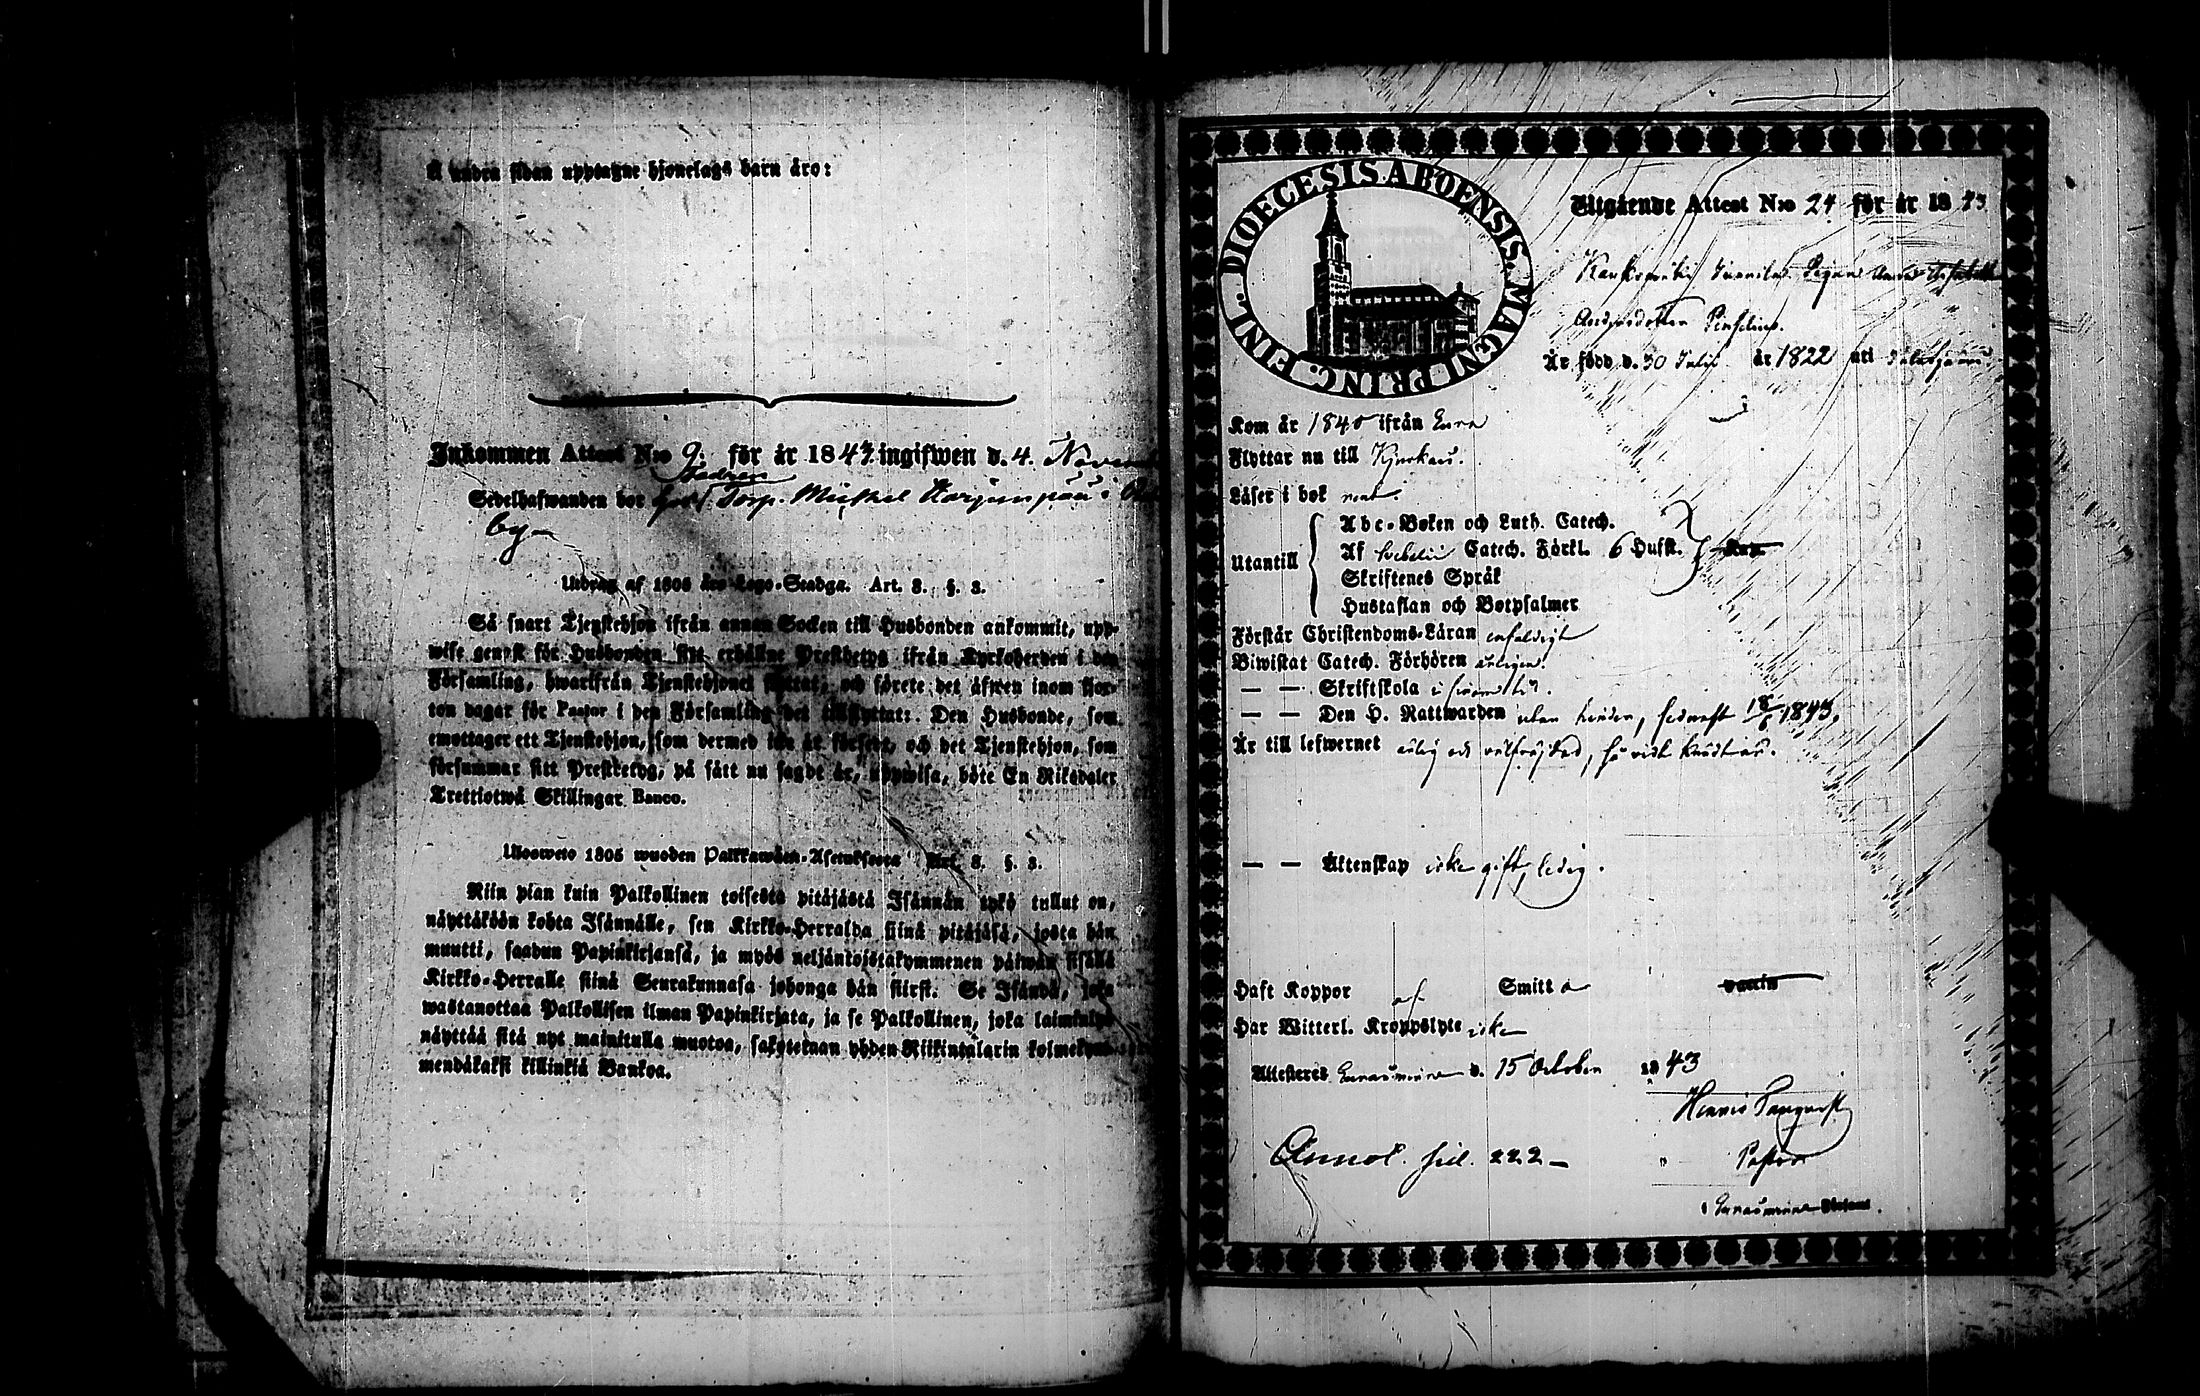 Å andra sidan upptagne hjonelags barn äro:
Inkommen Attest N:o 9. för år 1843. ingifwen d. 4. Novemb
Sedelhafwanden bor Torp. Mickel Harjunpää i
by
Utdrag af 1805 års Lego-Stadga. Art. 8. §. 3.
Så snart Tjenstehjon ifrån annan Socken till Husbonden ankommit, upp-
wise genast för Husbonden sitt erhållne Prestbetyg ifrån Kyrkoherden i den
Församling, hwarifrån Tjenstehjonet flyttat, och förete det äfwen inom fjor-
ton dagar för Pastor i den Församling det tillflyttat: Den Husbonde, som
emottager ett Tjenstehjon, som dermed icke är försedt, och det Tjenstehjon, som
försummar sitt Prestbetyg, på sätt nu sagdt är, uppwisa, böte En Riksdaler
Trettiotwå Skillingar Banco.
Ulosweto 1805 wuoden Palkkawäen-Asetuksesta Art. 8. §. 3.
Niin pian kuin Palkollinen toisesta pitäjästä Isännän tykö tullut on,
näyttäköön kohta Isännälle, sen Kirkko-Herralda siinä pitäjäsä, josta hän
muutti, saadun Papinkirjansa, ja myös neljäntoistakymmenen päiwän sisällä
Kirkko-Herralle siinä Seurakunnasa johonga hän siirsi. Se Isändä, joka
wastanottaa Palkollisen ilman Papinkirjata, ja se Palkollinen, joka laiminlyö
näyttää sitä nyt mainitulla muotoa, sakotetaan yhden Riikintalarin kolmekym-
mendäkaksi killinkiä Bankoa.
DIOECESIS ABOENSIS. MAGNI PRINC. FINL.
Utgående Attest N:o 24 för år 1843
Pigan Anna
Andersdotter
Är född d. 30 Julii år 1822 uti
Kom år 1840 ifrån Eura
Flyttar nu till Kjuckais.
Läser i bok
Utantill
Abc-Boken och Luth. Catech.
Af Svebelii Catech. Förkl. 6 Hufst.
Skriftenes Språk
Hustaflan och Botpsalmer
Förstår Christendoms-Läran enfaldigt
Biwistat Catech. Förhören årligen.
— — Skriftskola
— — Den H. Nattwarden utan hinder, sednast 18/6 1843.
Är till lefwernet ärlig och välfrejdad, så vidt kändt är.
— — Äktenskap icke gift, ledig.
Haft Koppor af Smitta vaccin
Har Witterl. Kroppslyte icke
Attesteras Euraåminne d. 15 October 1843
Henric
Pastor
Annot. fol. 222 —
i Euraåminne Församl.